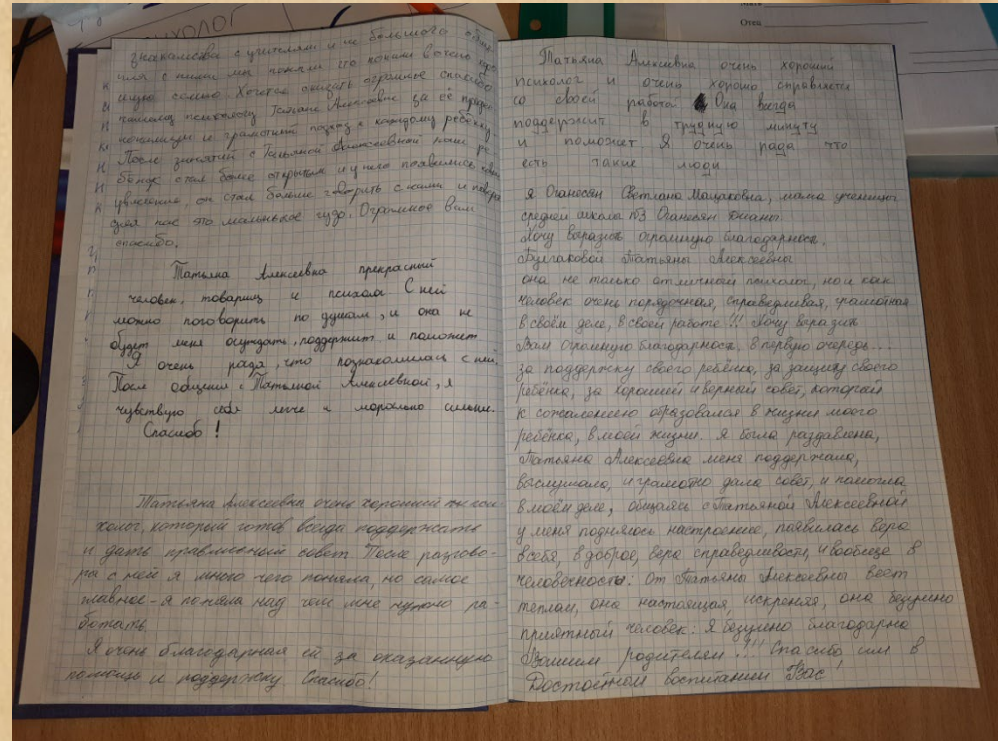 психолог
Отец
знакомства с учителями и не большого обще-
ния с ними мы поняли что попали в свою
семью. Хочется сказать огромное спасибо
психологу Татьяне Алексеевне за её
и грамотный подход к каждому ребёнку.
После занятий с Татьяной Алексеевной наш ре-
бёнок стал более открытым и у него появились
он стал больше говорить с нами и
для нас это маленькое чудо. Огромное Вам
спасибо.
Татьяна Алексеевна прекрасный
человек, товарищ и психолог С ней
можно поговорить по душам, и она не
будет меня осуждать, поддержит и поможет
Я очень рада, что познакомилась с ней.
После общения с Татьяной Алексеевной, я
чувствую себя легче и морально сильнее.
Спасибо!
Татьяна Алексеевна очень хороший
холог, который готов всегда поддержать
и дать правильный совет. После разгово-
ра с ней я много чего поняла, но самое
главное - я поняла над чем мне нужно ра-
ботать.
Я очень благодарная ей за оказанную
помощь и поддержку. Спасибо!
Татьяна Алексеевна очень хороший
психолог и очень хорошо справляется
со своей работой Она всегда
поддержит в трудную минуту
и поможет Я очень рада что
есть такие люди
Я Оганесян Светлана мама ученицы
средней школы №3 Оганесян Дианы.
Хочу выразить огромную благодарность,
Булгаковой Татьяны Алексеевны
она не только отличный психолог, но и как
человек очень порядочная, справедливая, грамотная
в своём деле, в своей работе!!! Хочу выразить
Вам огромную благодарность, в первую очередь...
за поддержку своего ребёнка, за защиту своего
ребёнка, за хороший и верный совет, который
к сожалению образовался в жизни моего
ребёнка, в моей жизни. Я была раздавлена,
Татьяна Алексеевна меня поддержала,
выслушала, и грамотно дала совет, и помогла
в моём деле, общаясь с Татьяной Алексеевной
у меня поднялось настроение, появилась вера
в себя, в доброе, вера справедливости, и вообще в
человечность: От Татьяны Алексеевны веет
теплом, она настоящая, искреняя, она безумно
приятный человек: Я безумно благодарна
Вашим родителям!!! Спасибо им в
Достойном воспитании Вас!